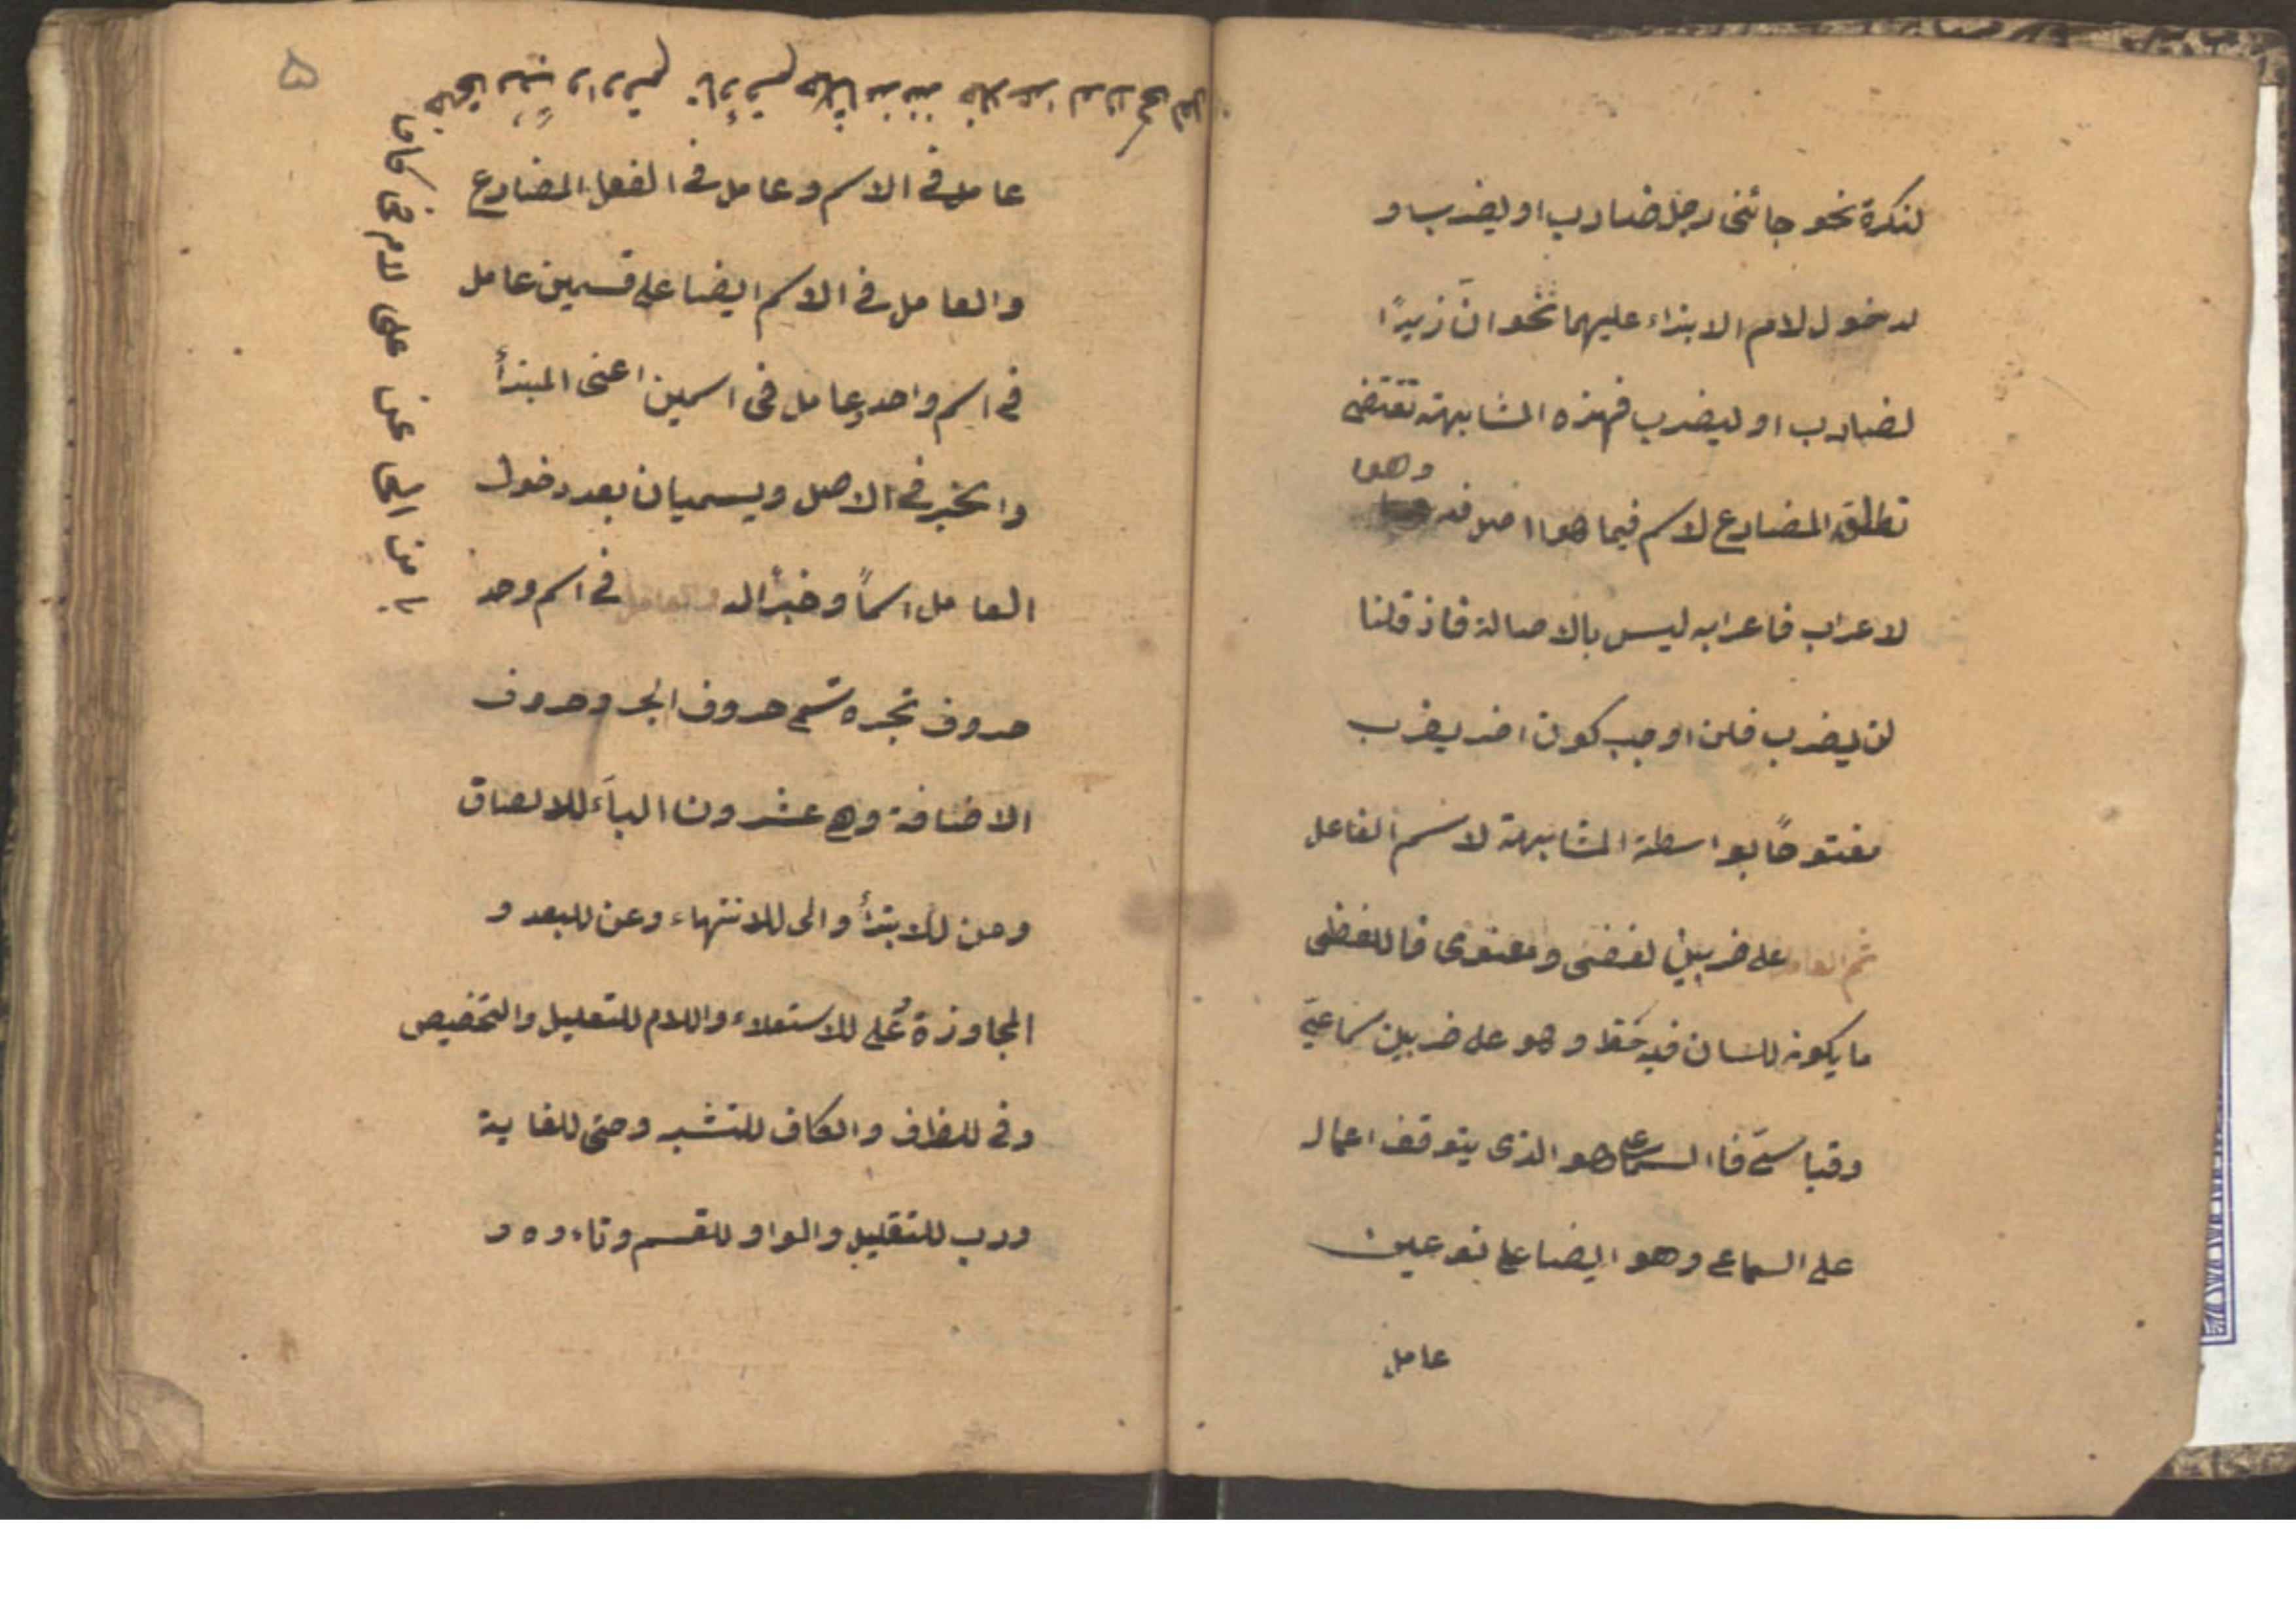 لنكرة نحو جائنى رجل ضارب او يضرب و
لدخول لام الابتداء عليهما نحو انّ زيدًا
لضارب او ليضرب فهذه المشابهة تقتضى
وهوا
تطلق المضارع لاسم فيما هوا اصل فيه
لاعراب فاعرابه ليس بالاصالة فاذ قلنا
لن يضرب فلن اوجب كون اخر يضرب
مفتوحًا بواسطة المشابهة لاسم الفاعل
ثم العامل على ضربين لفضى ومعنوى فاللفظى
ما يكون للسان فيه حَظ وهو على ضربين سماعىّ
وقياسىّ فاالسماعى هو الذى يتوقف اعماله
على السماعى وهو ايضا على نوعين
عامل
۵
عامل فى الاسم وعامل فى الفعل المضارع
والعامل فى الاسم ايضا على قسمين عامل
فى اسم واحد وعامل فى اسمين اعنى المبتدأ
والخبر فى الاصل ويسميان بعد دخول
العامل اسمًا وخبرًا له والعامل فى اسم وحد
حروف تجره تسمى حروف الجر وحروف
الاضافة وهى عشرون الباَء للالصاق
ومن للابتدأ والى للانتهاء وعن للبعد و
المجاوزة وُعلى للاستعلاء واللام للتعليل والتخصيص
وفى للظرف والكاف للتشبه وحتى للغاية
ورب للتقليل والواو للقسم وتاءوه و
با من الى عن على لام فى كاف